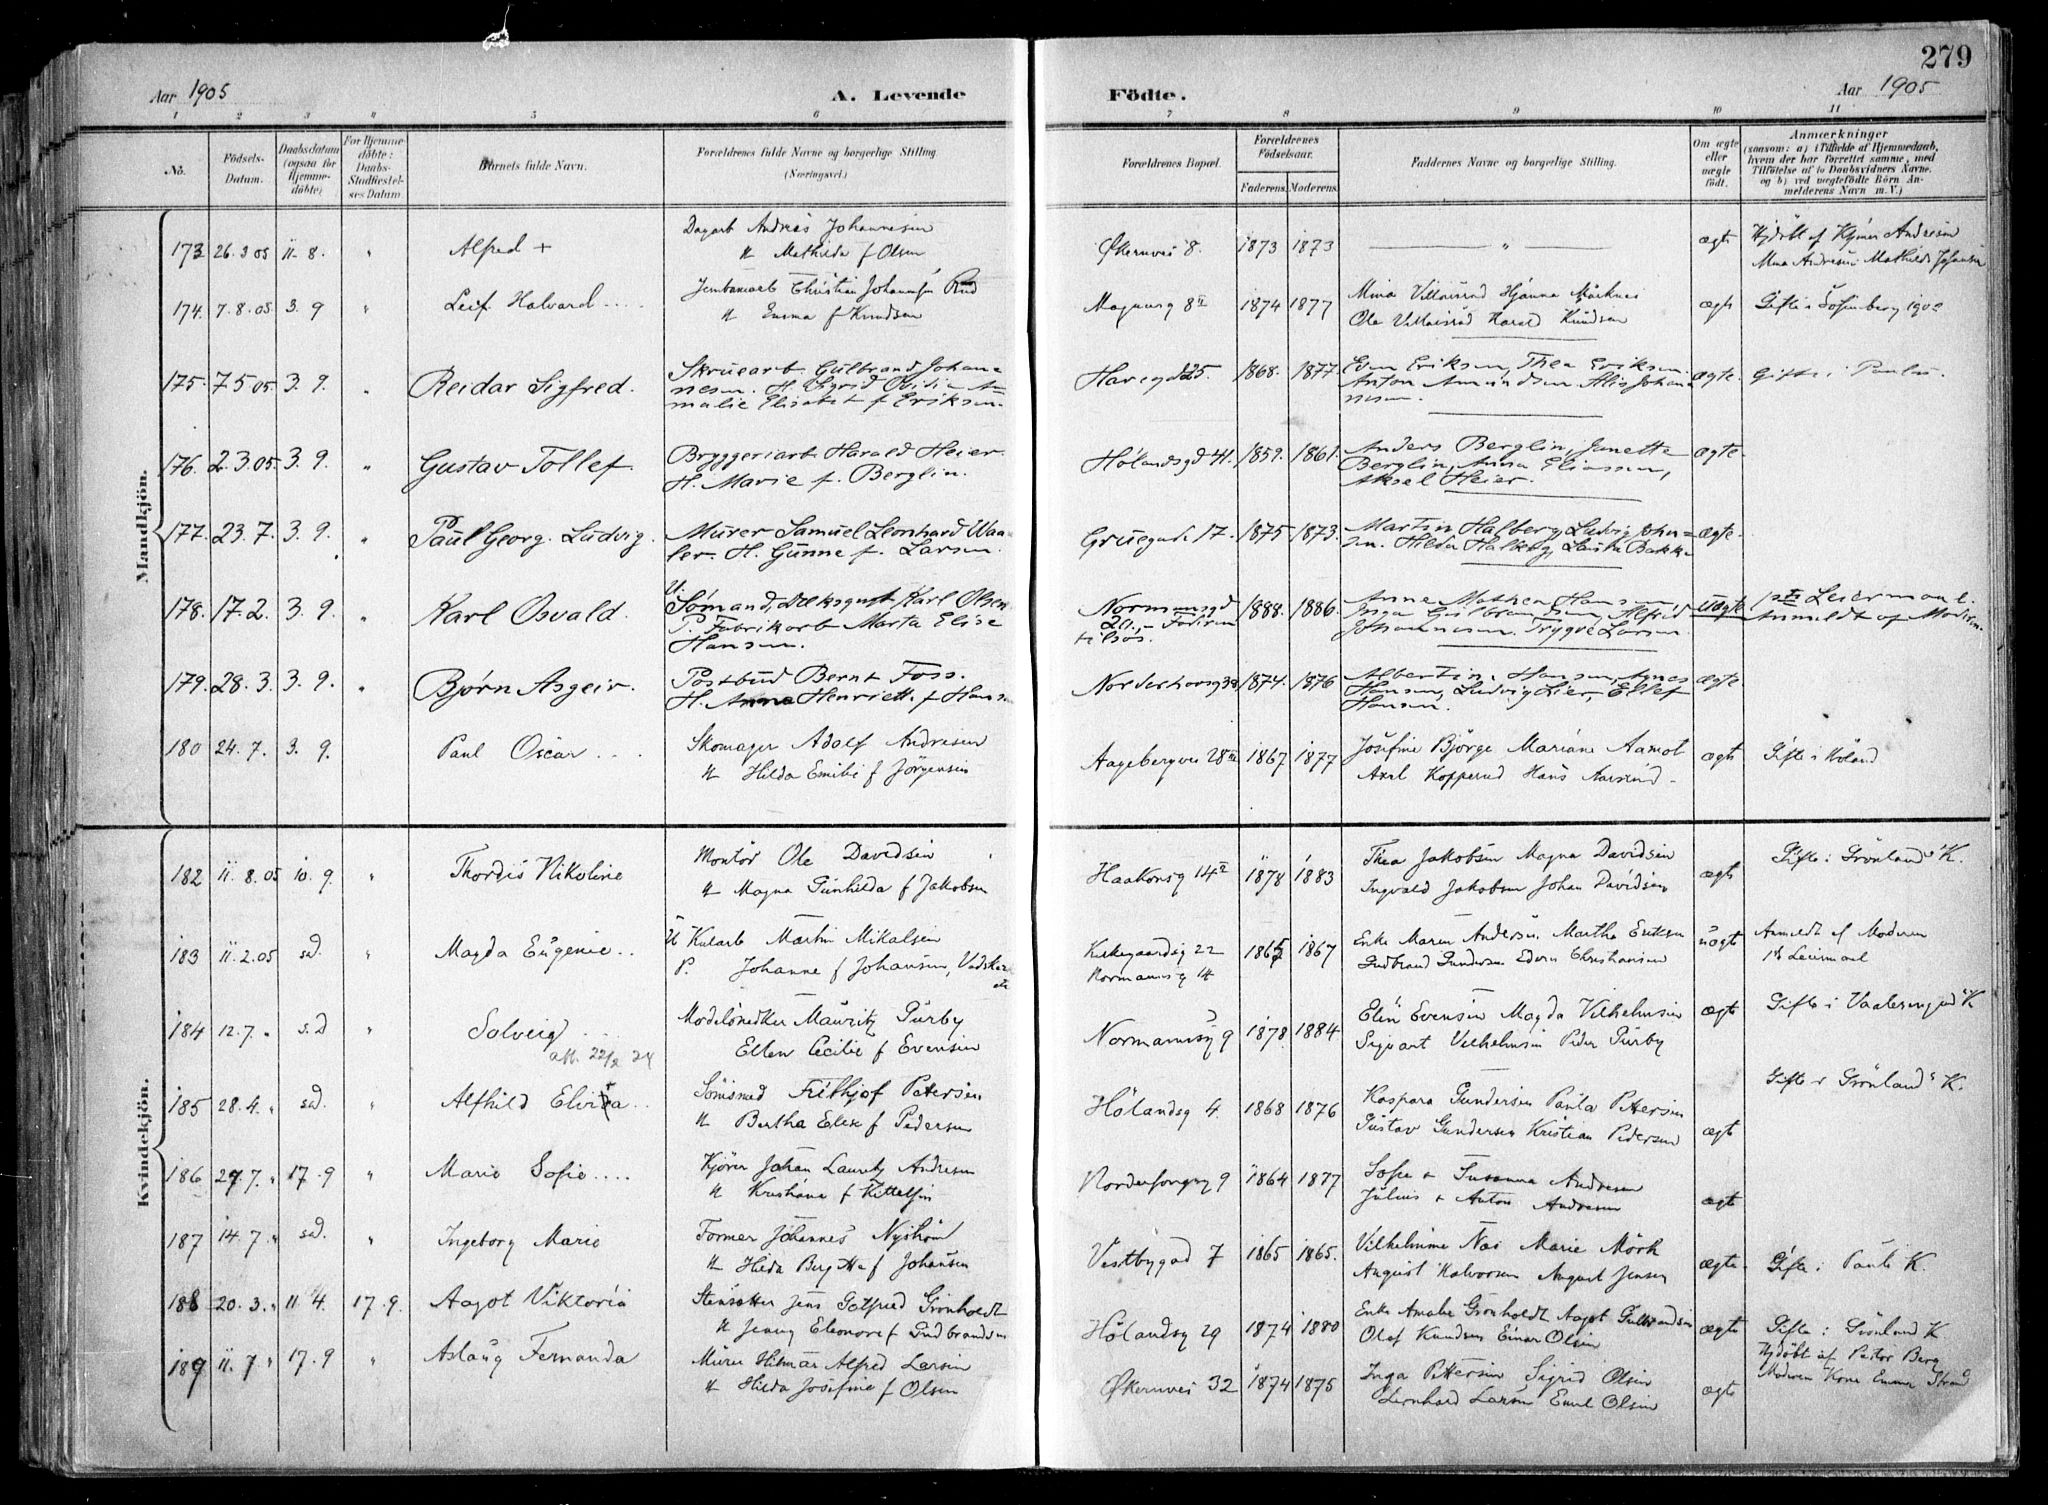 279
Aar 1905 A. Levende Födte. Aar 1905
1 2 3 4 5 6 7 8 9 10 11
No.
Födsels-
Datum.
Daabsdatum
(ogsaa for
Hjemme-
döbte)
For Hjemme-
döbte:
Daabs-
Stadfæstel-
ses Datum.
Barnets fulde Navn.
Forældrenes fulde Navne og borgerlige Stilling.
(Næringsvei.)
Forældrenes Bopæl.
Forældrenes
Födselsaar.
Faderens. Moderens.
Faddernes Navne og borgerlige Stilling.
Om ægte
eller
uægte
födt.
Anmærkninger
(saasom: a) i Tilfælde af Hjemmedaab,
hvem der har forrettet samme, med
Tilföielse af to Daabsvidners Navne.
og b) ved uægtefödte Börn An-
melderens Navn m. V.)
Mandkjön.
173 26.3 05 11 8. " Alfred + Dagarb Andreas Johannesen
H Mathilda f Olsen
Økernvei 8. 1873 1873 " ægte
Mina Andresen Mathilde Johansen
174. 7.8.05 3. 9 " Leif Halvard
Jernbanearb Christian Johannesen Rud
H Emma f Knudsen
8 II 1874 1877 ægte
Ole Harald Knudsen
175. 7.5 05. 3. 9. " Reidar Sigfred.
Skruearb. Gulbrand Johan-
nesen. H. Sigrid Ovidia A-
malie Elisabet f Eriksen.
Havegd 25. 1868. 1877. Even Eriksen, Thea Eriksen.
Anton Amundsen Johan-
nesen. ægte. Gifte i Paulus.
176. 2.3.05. 3. 9. " Gustav Tollef.
Bryggeriarb Harald Heier.
H. Marie f. Berglin.
Hölandsgd 41. 1859. 1861. Anders Berglin, Janette
Berglin, Anna Eliassen,
Aksel Heier. ægte.
177. 23.7. 3. 9. " Paul Georg. Ludvig.
Murer Samuel Leonhard Waa-
ler. H. Gunne f. Larsen.
Gruegade 17. 1875 1873. Martin Halberg, Ludvig John-
sen. Hilda Halberg, Bakke ægte.
178. 17.2. 3. 9. " Karl Osvald.
U.
Sömand, Karl Olsen
P. Fabrikarb Marta Elise
Hansen.
Normansgd
20. – Faderen
tilsös. 1888. 1886. Anne Mathea Hansen
Inga Gulbrandsen, Alfrid
Johannesen. Trygve Larsen Uægte 1ste Leiermaal.
Anmeldt af Moderen.
179. 28.3. 3. 9. " Bjørn Asgeir.
Postbud Bernt Foss.
H. Anna Henriette f Hansen
1874. 1876 Albertine Hansen, Agnes
Hansen, Ludvig Lier, Ellef
Hansen. ægte.
180 24.7. 3. 9. Paul Oscar
Skomager Adolf Andresen
H Hilda Emilie f Jörgensen
Aagebergvei 28 III 1867 1877 Josefine Björge Mariane Aamot
Axel Kopperud Hans ægte Gifte i Höland
Kvindekjön.
182 11.8.05 10. 9. " Thordis Nikoline
Montör Ole Davidsen
H Magna Gunhilda f Jakobsen
Haakonsg 14 II 1878 1883 Thea Jakobsen Magna Davidsen
Ingvald Jakobsen Johan Davidsen ægte Gifte i Grönlands K.
183 11.2.05 s.d. " Magda Eugenie
U Kularb Martin Mikalsen
P. Johanne f Johansen, Vadsker
Kirkegaardsg 22
Normannsg 14 1865 1867 Enke Maren Andersen Martha Eriksen
Gudbrand Gundersen Edvin Christiansen uægte Anmeldt af Moderen
1ste Leiermaal
184 12.7. " s.d " Solveig
att. 22/2 24
Modelsnedker Mauritz Purby
Ellen Cecilie f Evensen
Normannsg 9 1878 1884 Elen Evensen Magda Vilhelmsen
Sigvart Vilhelmsen Peder Purby ægte Gifte i Vaalerengens K
185 28.4. " s.d. " Alfhild Elvira
Sömsmed Frithjof Petersen
H Bertha Elise f Pedersen
Hölandsg 4. 1868 1876 Kaspara Gundersen Paula Petersen
Gustav Gundersen Kristian Pedersen ægte Gifte i Grönlands K.
186 27.7. " 17.9 " Marie Sofie
Kjörer Johan Lauritz Andresen
H Kristiana f Kittelsen
9 1864 1877 Sofie & Susanna Andresen
Julius & Anton Andresen ægte
187 14.7. " s.d. " Ingeborg Marie
Former Johannes Nyström
H Hilda Bergitte f Johansen
Vestbygad 7 1865 1865. Vilhelmine Næs Marie Mörk
August Halvorsen August Jensen ægte. Gifte i Pauls K.
188 20.3. " 11 4. 17.9. Aagot Viktoria
Stensætter Jens Gotfred Grönholdt
H Jenny Eleonore f Gudbrandsen
Hölandsg 29 1874 1880 Enke Amalie Grönholdt Aagot Gulbrandsen
Olaf Knudsen Einar Olsen ægte Gifte i Grönland K
Hjdöbt af Pastor Berg
Moderen Kone Emma Strand
189 11.7 " 17.9 " Aslaug Fernanda
Murer Hilmar Alfred Larsen
H Hilda Josefine f Olsen
Økernvei 32 1874 1875 Inga Pettersen Sigrid Olsen
Lernhard Larsen Emil Olsen ægte